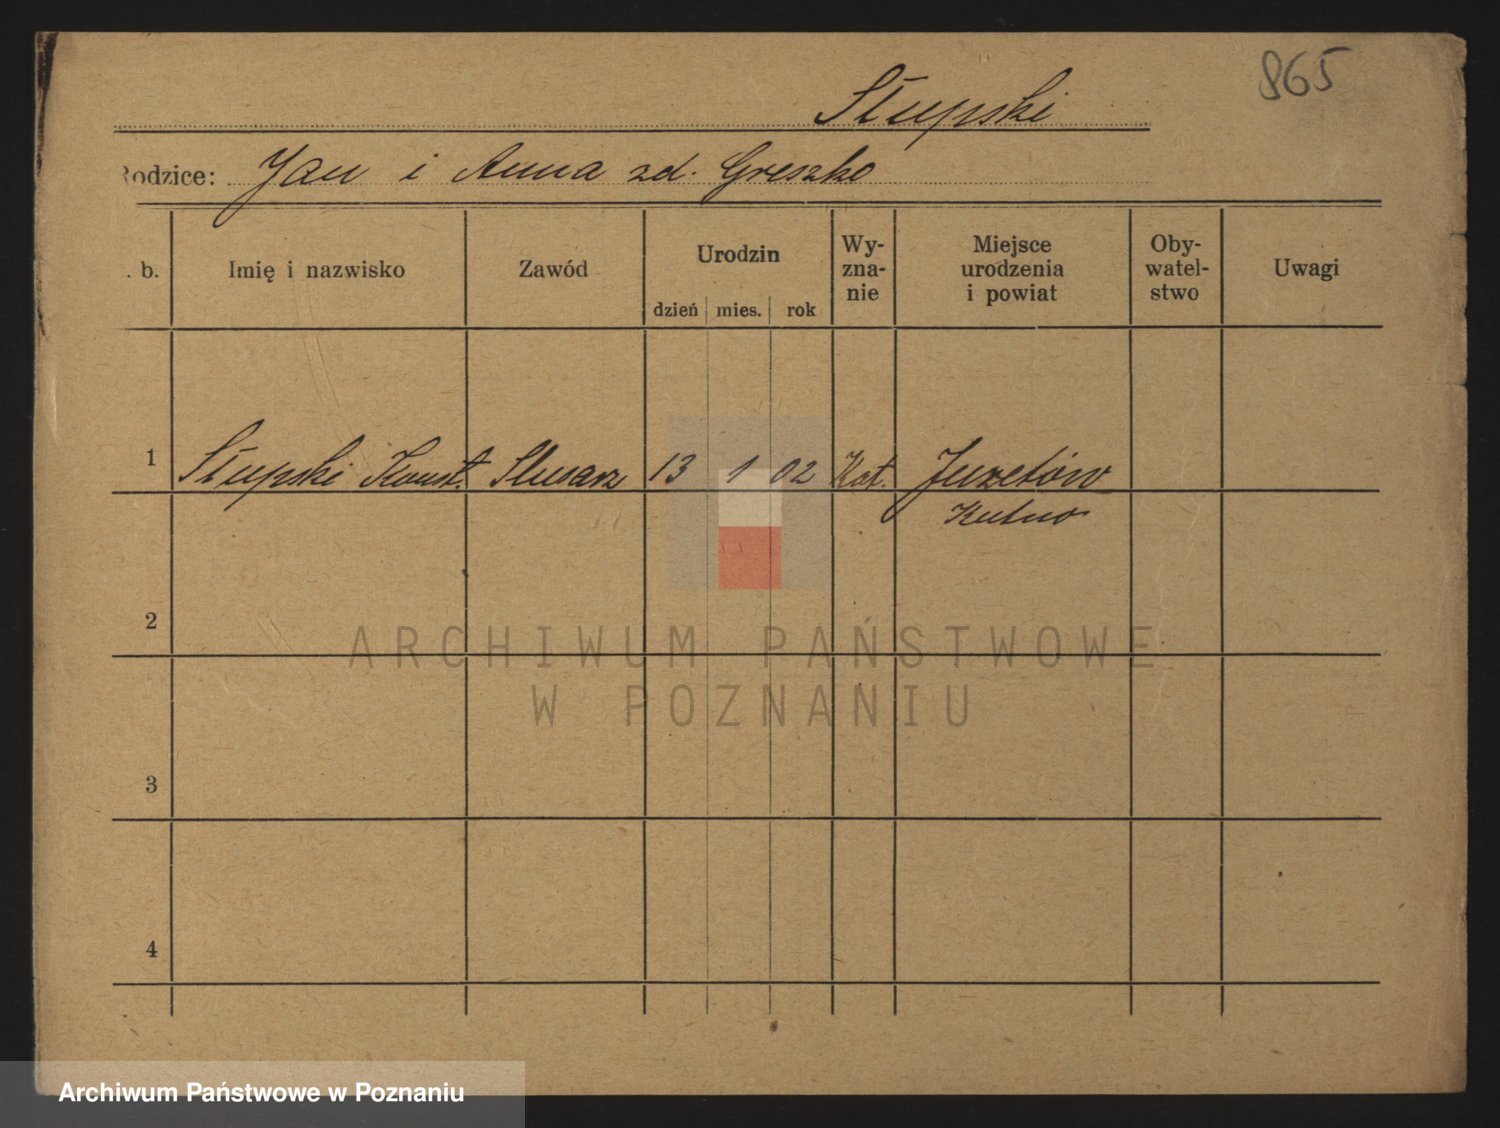 865
Słupski
Rodzice: Jan i Anna zd. Greszko
. b. Imię i nazwisko Zawód Urodzin dzień mies. rok Wy- zna- nie Miejsce urodzenia i powiat Oby- watel- stwo Uwagi
1 Słupski Konst. Slusarz 13 1 02 Kat. Juzetów
Kutno
2
3
4
ARCHIWUM PAŃSTWOWE
W POZNANIU
Archiwum Państwowe w Poznaniu